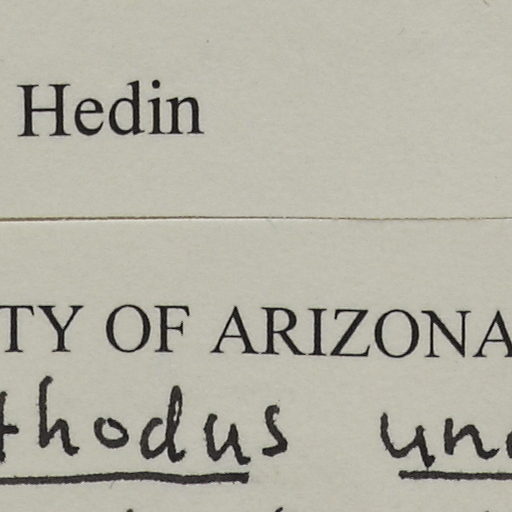 Hedin
TY OF ARIZONA
thodus un